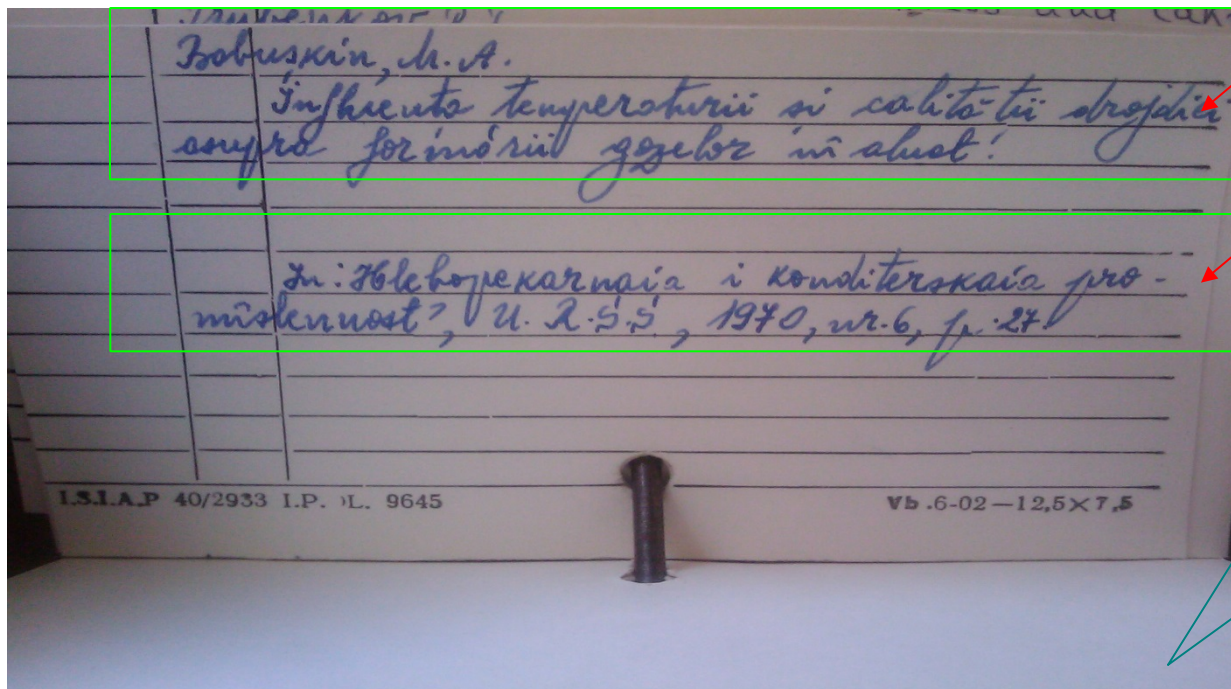 Bobuskin, M.A.
Influenta temperaturii si calitătii drojdiei
asupra formării gazelor în aluat.
In: Hlebopekarnaia i konditerskaia pro-
mîslennost', U.R.S.S, 1970, nr.6, p.27.
I.S.I.A.P 40/2933 I.P. L. 9645
Vb.6-02—12,5×7,5